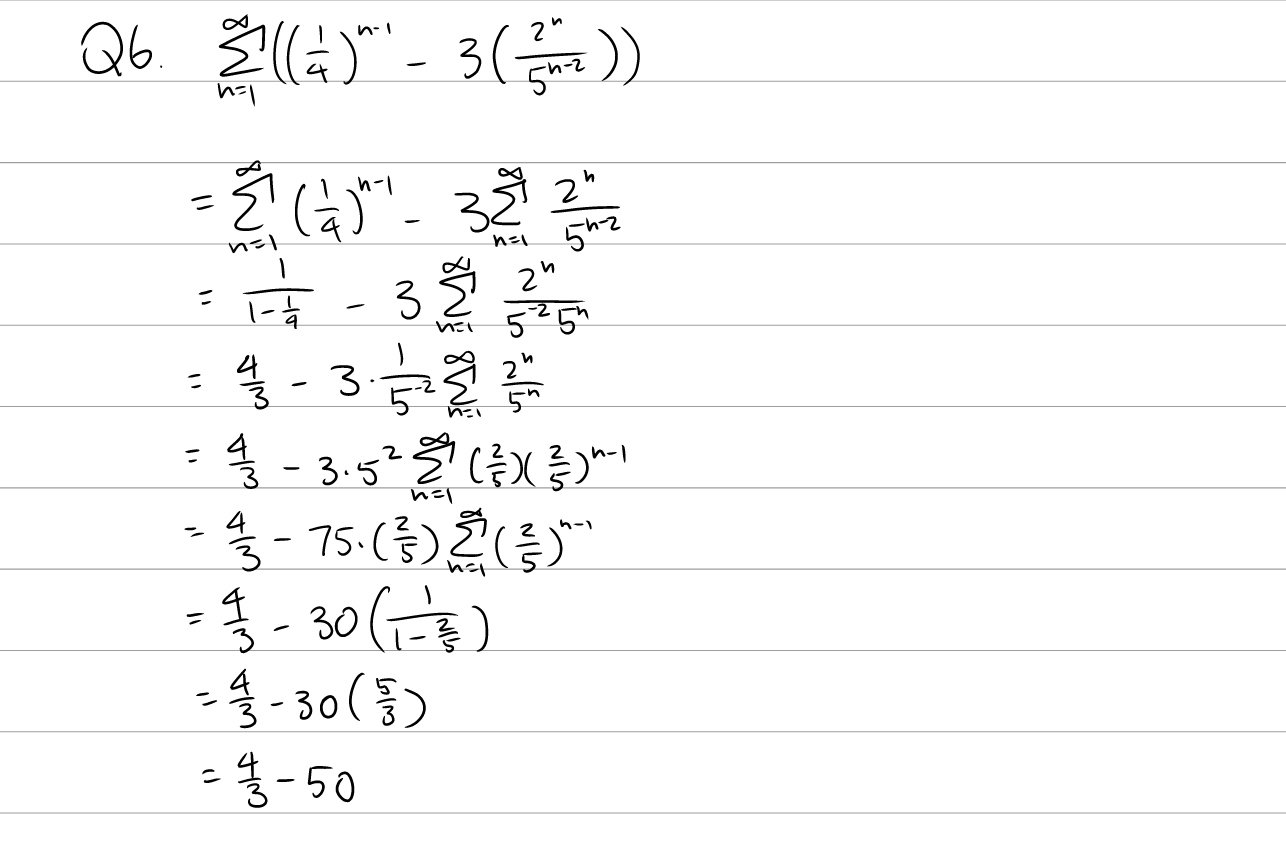 Q6. $\sum_{n=1}^{\infty}\left(\left(\frac{1}{4}\right)^{n-1} - 3\left(\frac{2^n}{5^{n-2}}\right)\right)$
$= \sum_{n=1}^{\infty}\left(\frac{1}{4}\right)^{n-1} - 3\sum_{n=1}^{\infty}\frac{2^n}{5^{n-2}}$
$= \frac{1}{1-\frac{1}{4}} - 3\sum_{n=1}^{\infty}\frac{2^n}{5^{-2}5^n}$
$= \frac{4}{3} - 3\cdot\frac{1}{5^{-2}}\sum_{n=1}^{\infty}\frac{2^n}{5^n}$
$= \frac{4}{3} - 3\cdot 5^2\sum_{n=1}^{\infty}\left(\frac{2}{5}\right)\left(\frac{2}{5}\right)^{n-1}$
$= \frac{4}{3} - 75\cdot\left(\frac{2}{5}\right)\sum_{n=1}^{\infty}\left(\frac{2}{5}\right)^{n-1}$
$= \frac{4}{3} - 30\left(\frac{1}{1-\frac{2}{5}}\right)$
$= \frac{4}{3} - 30\left(\frac{5}{3}\right)$
$= \frac{4}{3} - 50$